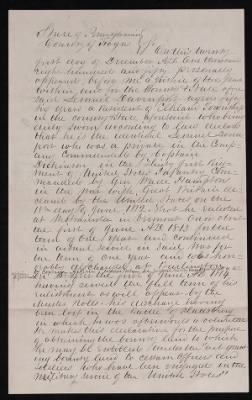 State of Pennsylvania
County of Tioga } SS
On this twenty
first day of December A.D. one thousand
eight hundred and fifty personally
appeared before me a Justice of the peace
within and for the County & State afore
said Samuel Davenport aged fifty
six years a resident of Township
in the county & State aforesaid who being
duly sworn according to law declares
that he is the identical Samuel Daven
port who was a private in the Comp
any commanded by Captain
Dickinson in the Regi
ment of United States Infantry Com
manded by
in the war with Great Britain de
clared by the United States on the
day of June 1812. That he enlisted
at in Vermont on or about
the first of June A.D. 1813 for the
term of one year and continued
in actual service in said war for
the term of one year and was honor
ably discharged at
1814
having served the full term of his
enlistment as will appear by the
muster rolls his discharge having
been lost in the
in which he was
he makes this declaration for the purpose
of obtaining the bounty land to which
he may be entitled under the "act grant
ing bounty land to certain officers and
Soldiers who have been engaged in the
military service of the United States"